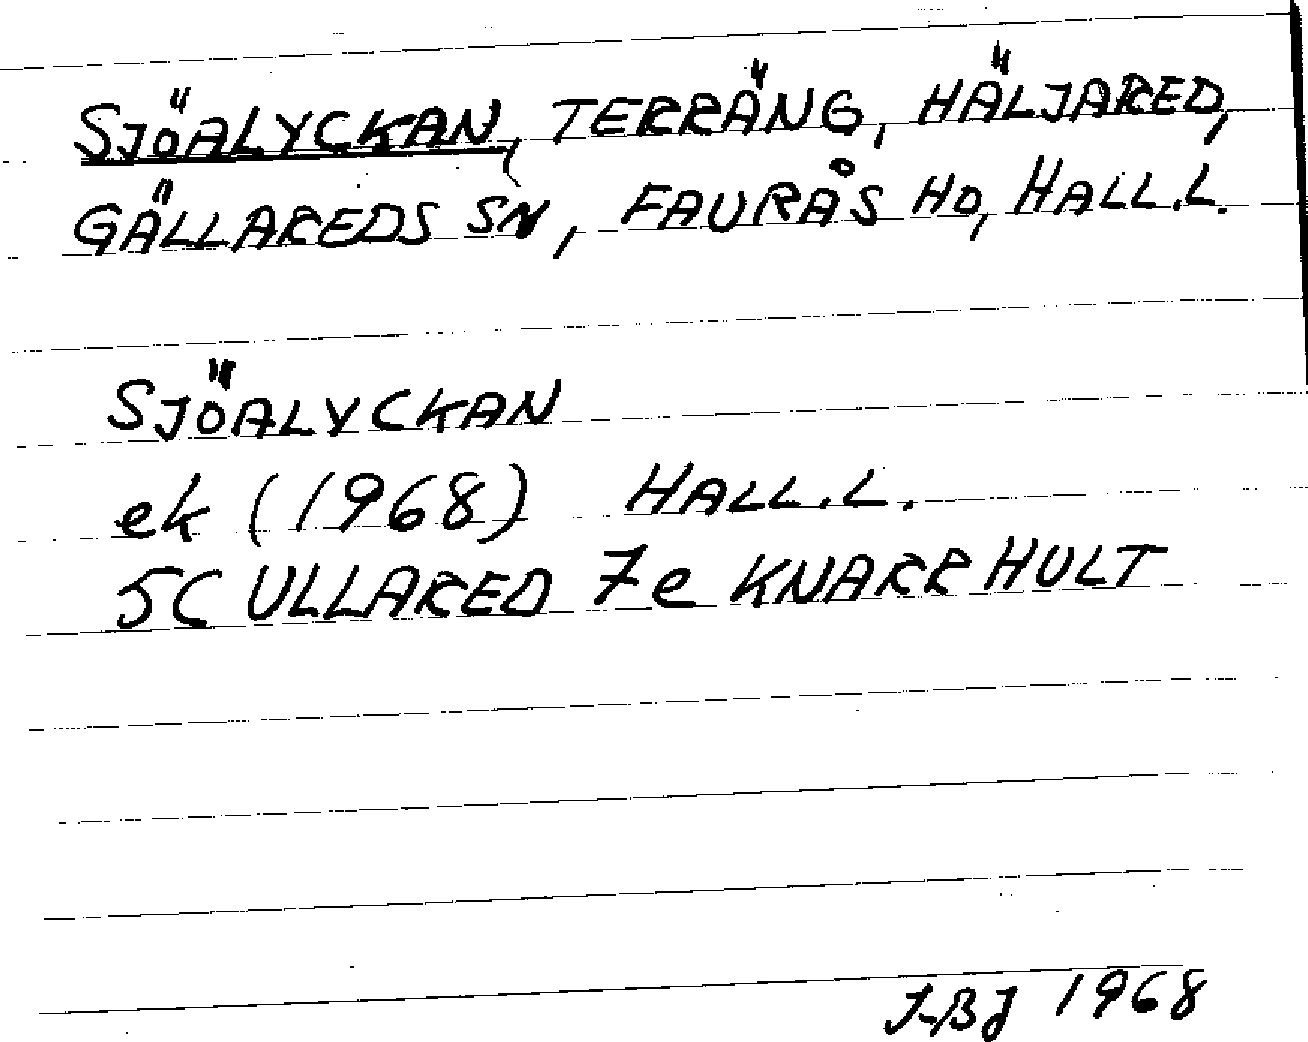 SJÖALYCKAN, TERRÄNG, HÄLJARED,
GÄLLAREDS SN, FAURÅS HD, HALL.L.
SJÖALYCKAN
ek (1968) HALL.L.
5C ULLARED 7e KNARRHULT
J-BJ 1968